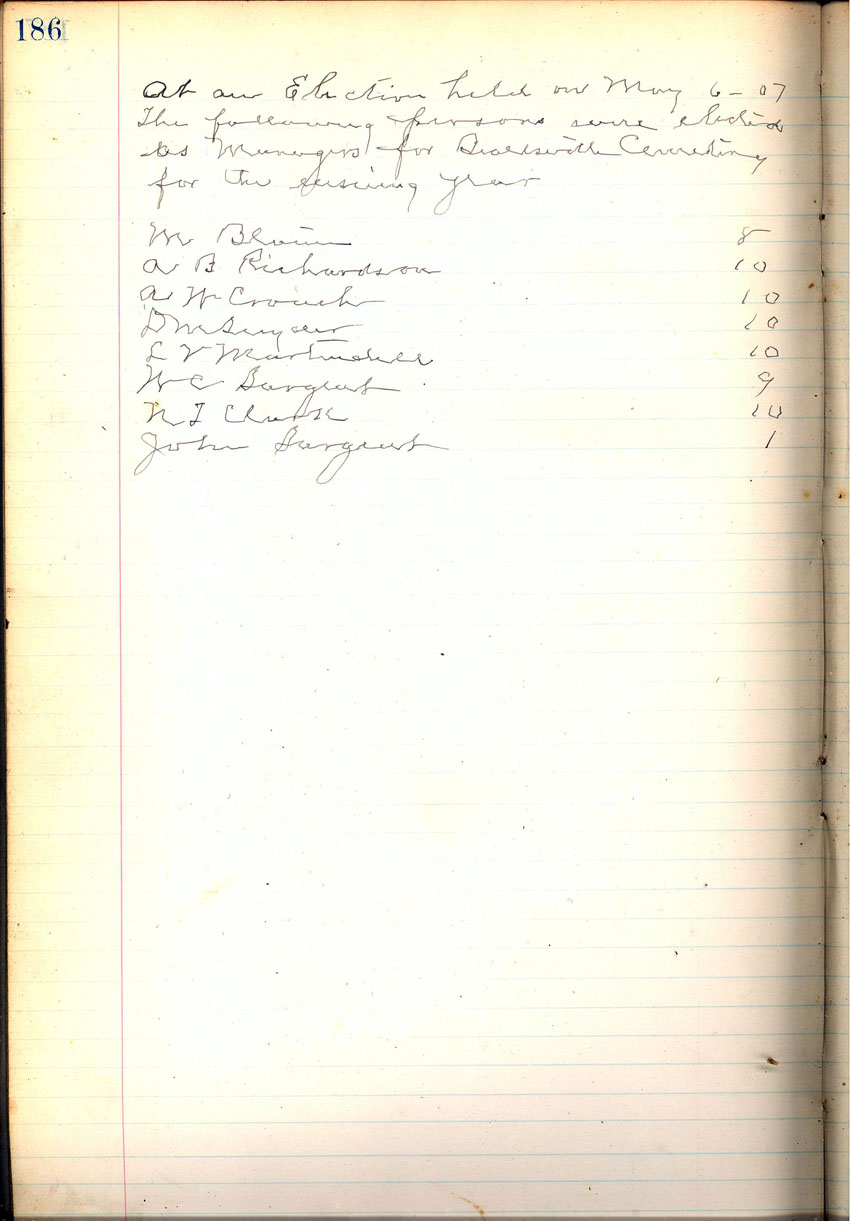 186
At an Election held on May 6-07
The following persons were elected
as Managers for Beallsville Cemetery
for the ensuing year
8
A B Richardson 10
A W Crouch 10
D M Snyder 10
L V Martindell 10
W C Sargent 9
N T Clark 10
John Sargent 1